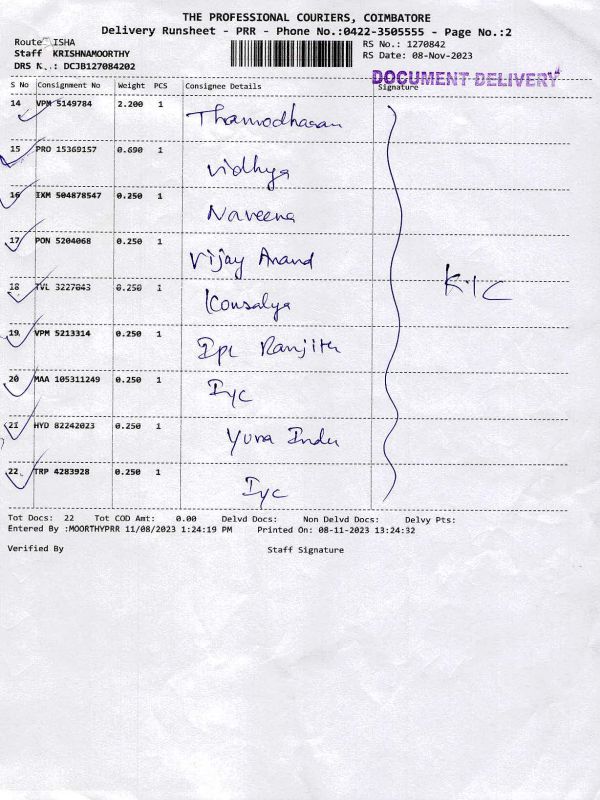 THE PROFESSIONAL COURIERS, COIMBATORE
Delivery Runsheet - PRR - Phone No.:0422-3505555 - Page No.:2
Route ISHA
Staff KRISHNAMOORTHY
DRS N.: DCJB127084202
RS No.: 1270842
RS Date: 08-Nov-2023
DOCUMENT DELIVERY
S No Consignment No Weight PCS Consignee Details Signature
14 VPM 5149784 2.200 1 Thamodharan
15 PRO 15369157 0.690 1 Vidhya
16 IXM 504878547 0.250 1 Naveena
17 PON 5204068 0.250 1 Vijay Anand
18 TVL 3227043 0.250 1 Kousalya
19 VPM 5213314 0.250 1 Ranjith
20 MAA 105311249 0.250 1 Iyc
21 HYD 82242023 0.250 1 Yuva Indu
22 TRP 4283928 0.250 1 Iyc
Tot Docs: 22 Tot COD Amt: 0.00 Delvd Docs: Non Delvd Docs: Delvy Pts:
Entered By :MOORTHYPRR 11/08/2023 1:24:19 PM Printed On: 08-11-2023 13:24:32
Verified By Staff Signature